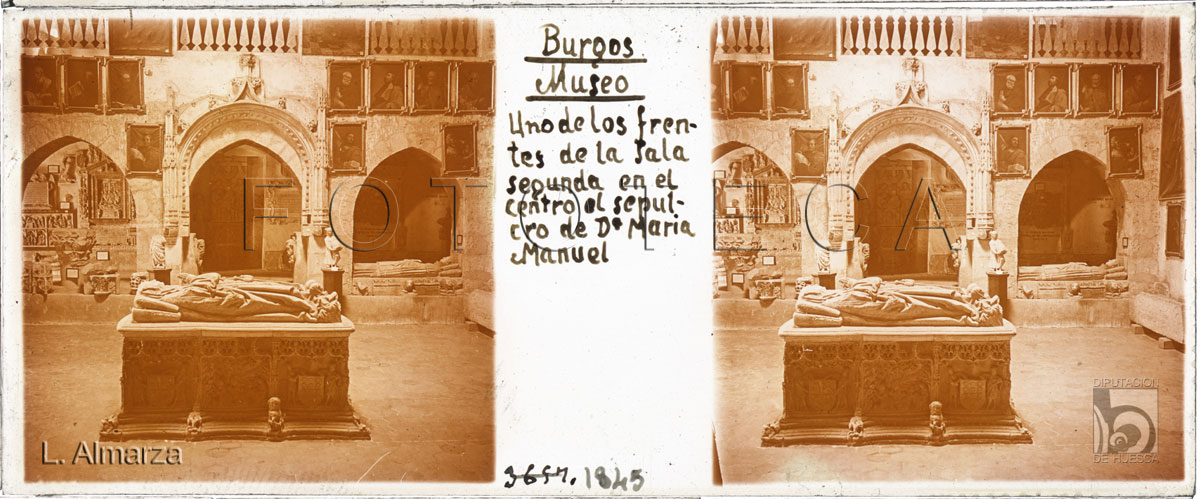 Burgos
Museo
Uno de los fren-
tes de la sala
segunda en el
centro el sepul-
cro de Dª Maria
Manuel
3657. 1845
FOTOTECA
L. Almarza
DIPUTACIÓN
DE HUESCA